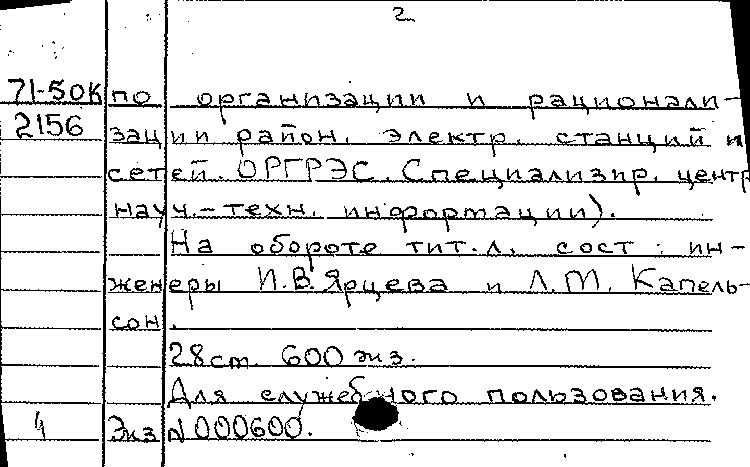 2
71-50К по организации и рационали-
2156 зации район. электр. станций и
сетей. ОРГРЭС. Специализир. центр
науч.-техн. информации).
На обороте тит. л. сост.: ин-
женеры И.В. Ярцева и Л.М. Капель-
сон.
28 ст. 600 экз.
Для служебного пользования.
4 Экз N 000600.